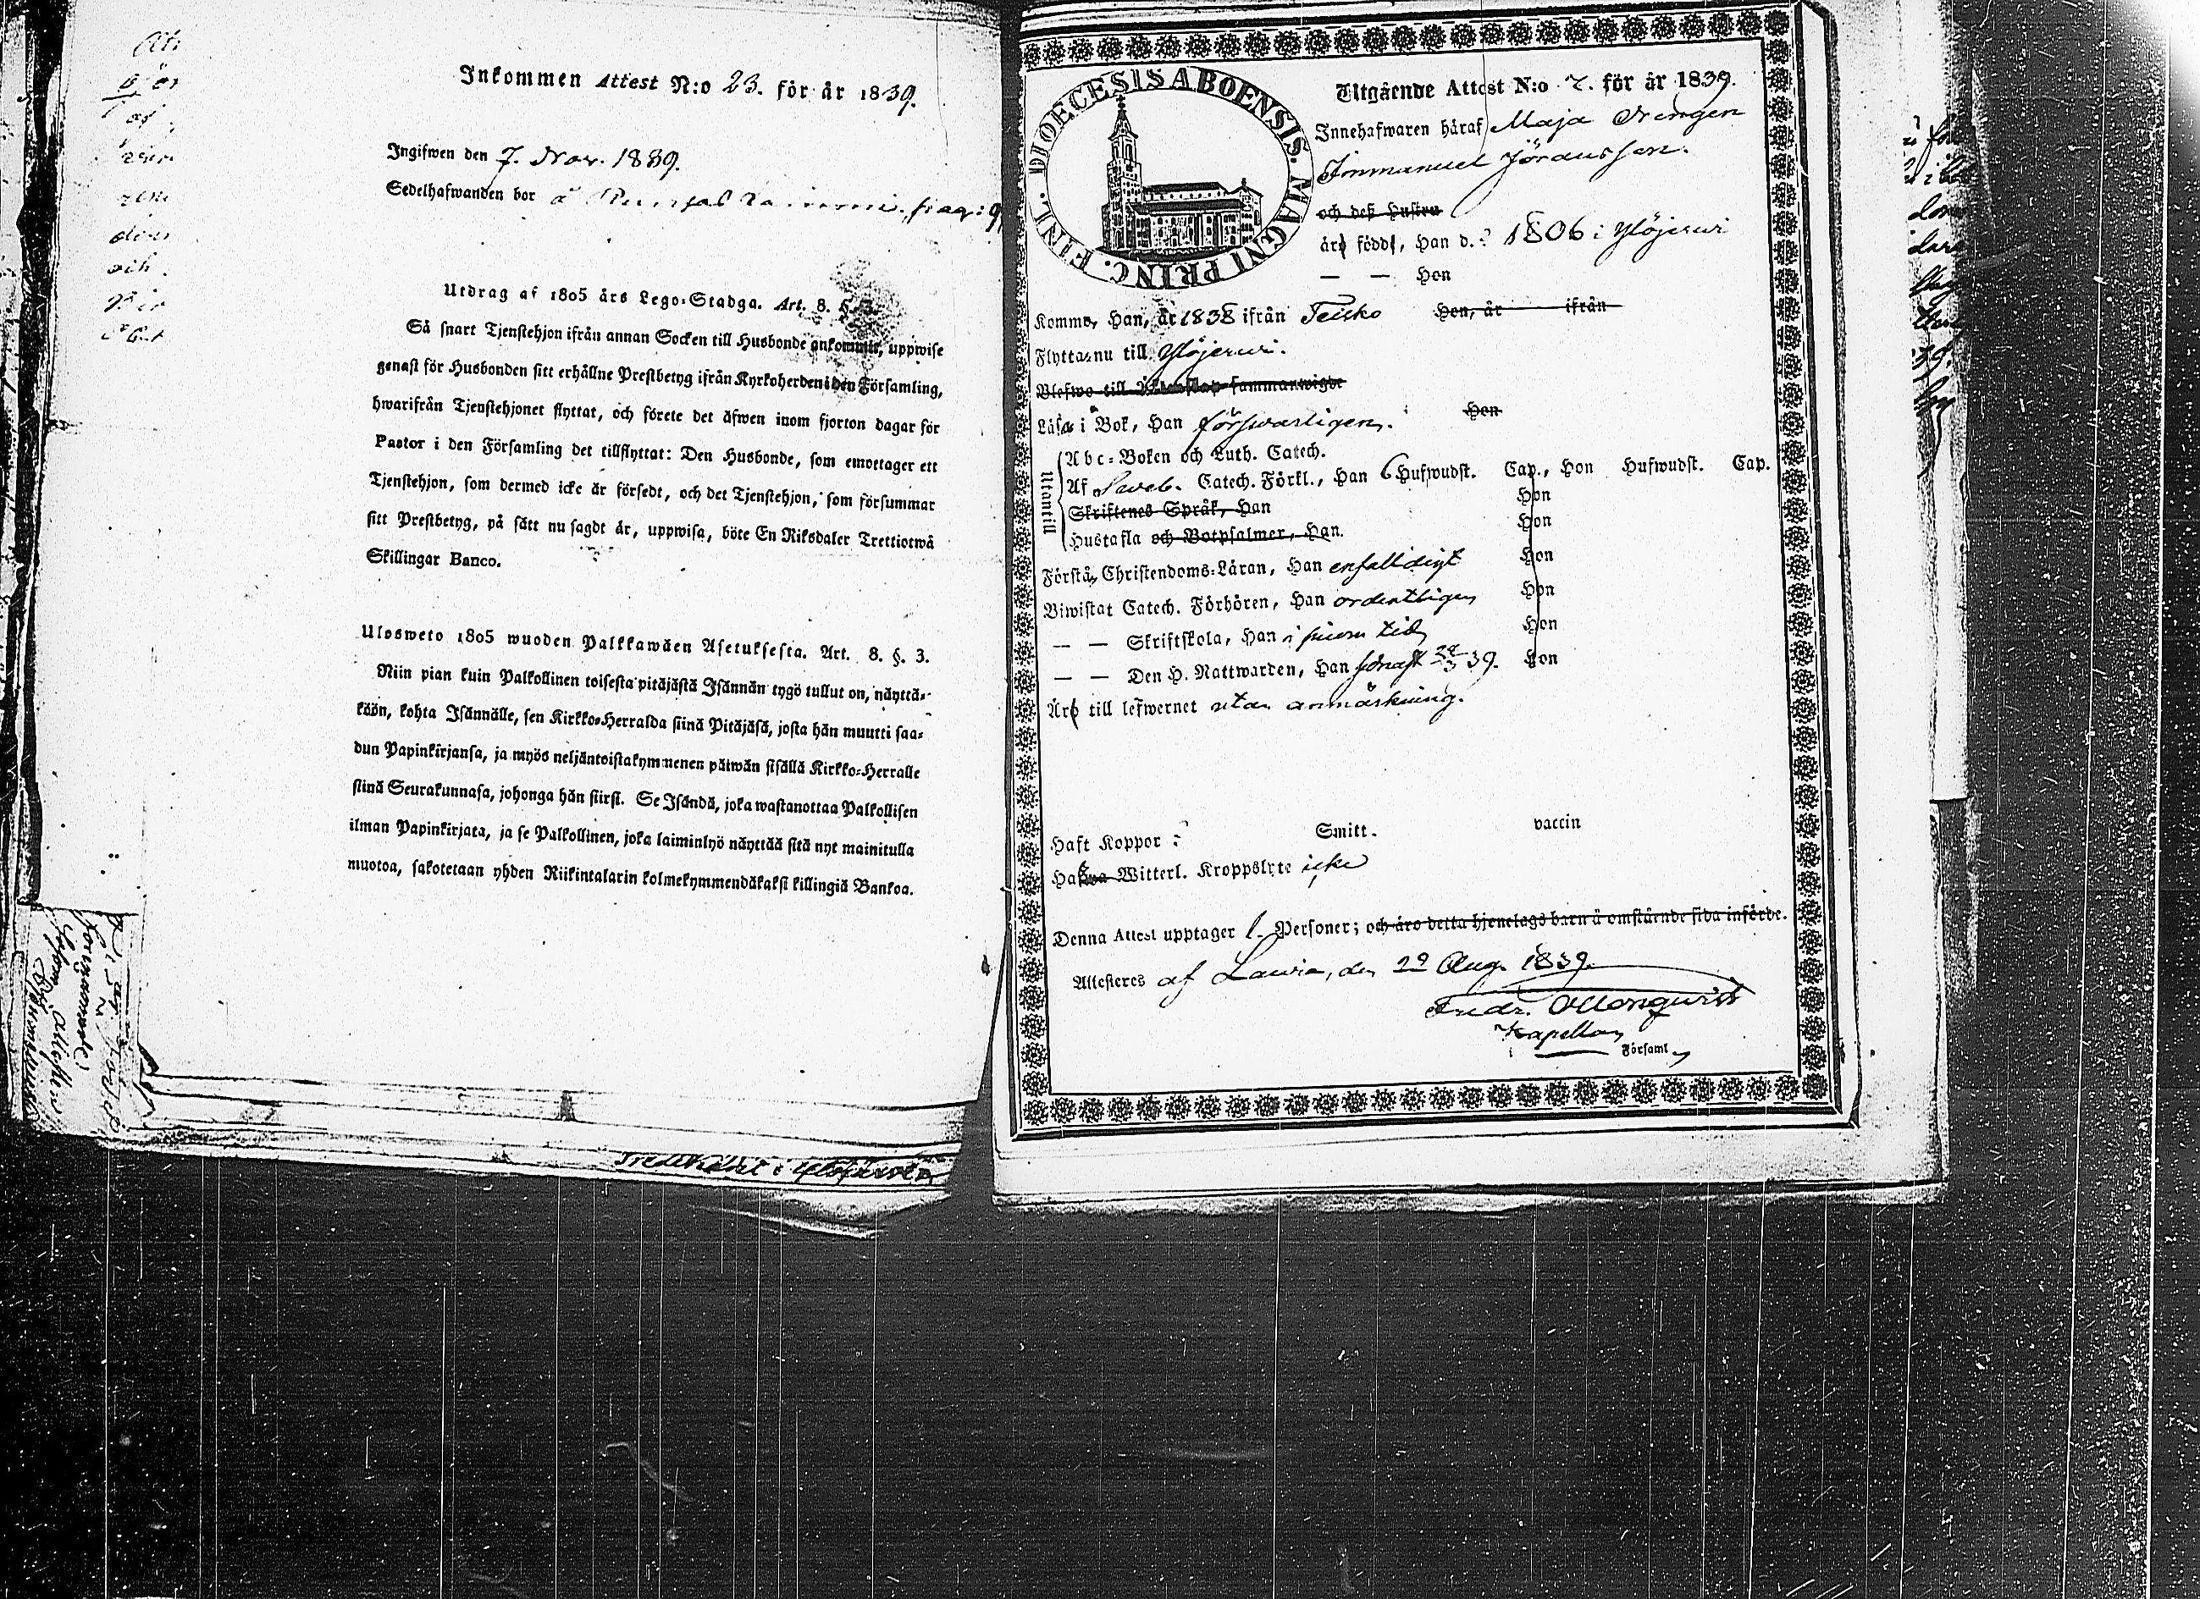 Inkommen Attest N:o 23. för år 1839.
Ingifwen den 7. Nov. 1839.
Sedelhafwanden bor å
Utdrag af 1805 års Lego-Stadga. Art. 8. §. 3.
Så snart Tjenstehjon ifrån annan Socken till Husbonde ankommit, uppwise
genast för Husbonden sitt erhållne Prestbetyg ifrån Kyrkoherden i den Församling,
hwarifrån Tjenstehjonet flyttat, och förete det äfwen inom fjorton dagar för
Pastor i den Församling det tillflyttat: Den Husbonde, som emottager ett
Tjenstehjon, som dermed icke är försedt, och det Tjenstehjon, som försummar
sitt Prestbetyg, på sätt nu sagdt är, uppwisa, böte En Riksdaler Trettiotwå
Skillingar Banco.
Ulosweto 1805 wuoden Palkkawäen Asetuksesta. Art. 8. §. 3.
Niin pian kuin Palkollinen toisesta pitäjästä Isännän tygö tullut on, näyttä-
köön, kohta Isännälle, sen Kirkko-Herralda siinä Pitäjäsä, josta hän muutti saa-
dun Papinkirjansa, ja myös neljäntoistakymmenen päiwän sisällä Kirkko-Herralle
siinä Seurakunnasa, johonga hän siirsi. Se Isändä, joka wastanottaa Palkollisen
ilman Papinkirjata, ja se Palkollinen, joka laiminlyö näyttää sitä nyt mainitulla
muotoa, sakotetaan yhden Riikintalarin kolmekymmendäkaksi killingiä Bankoa.
DIOECESIS ABOENSIS. MAGNI PRINC. FINL.
Utgående Attest N:o 7. för år 1839.
Innehafwaren häraf Maja Drengen
Immanuel Jöransson.
och desz Hustru
äro födde, Han d. ? 1806 i Ylöjerwi
— — Hon
Komme, Han, år 1838 ifrån Teisko Hon, år ifrån
Flytta nu till Ylöjerwi.
Blefwo till Äktenskap sammanwigde
Läsa i Bok, Han försvarligen. Hon
Utantill
Abc-Boken och Luth. Catech.
Af Sveb. Catech. Förkl., Han 6 Hufwudst. Cap., Hon Hufwudst. Cap.
Skriftenes Språk, Han Hon
Hustafla och Botpsalmer, Han. Hon
Förstå Christendoms-Läran, Han enfalldigt Hon
Biwistat Catech. Förhören, Han ordentligen Hon
— — Skriftskola, Han i sinom tid Hon
— — Den H. Nattwarden, Han sednast 39. Hon
Äro till lefwernet utan anmärkning.
Haft Koppor ? Smitt. vaccin
Hafwa Witterl. Kroppslyte icke
Denna Attest upptager 1. Personer; och äro detta hjonelags barn å omstående sida införde.
Attesteres af Lawia, den 29 Aug. 1839.
Kapellan
Församl